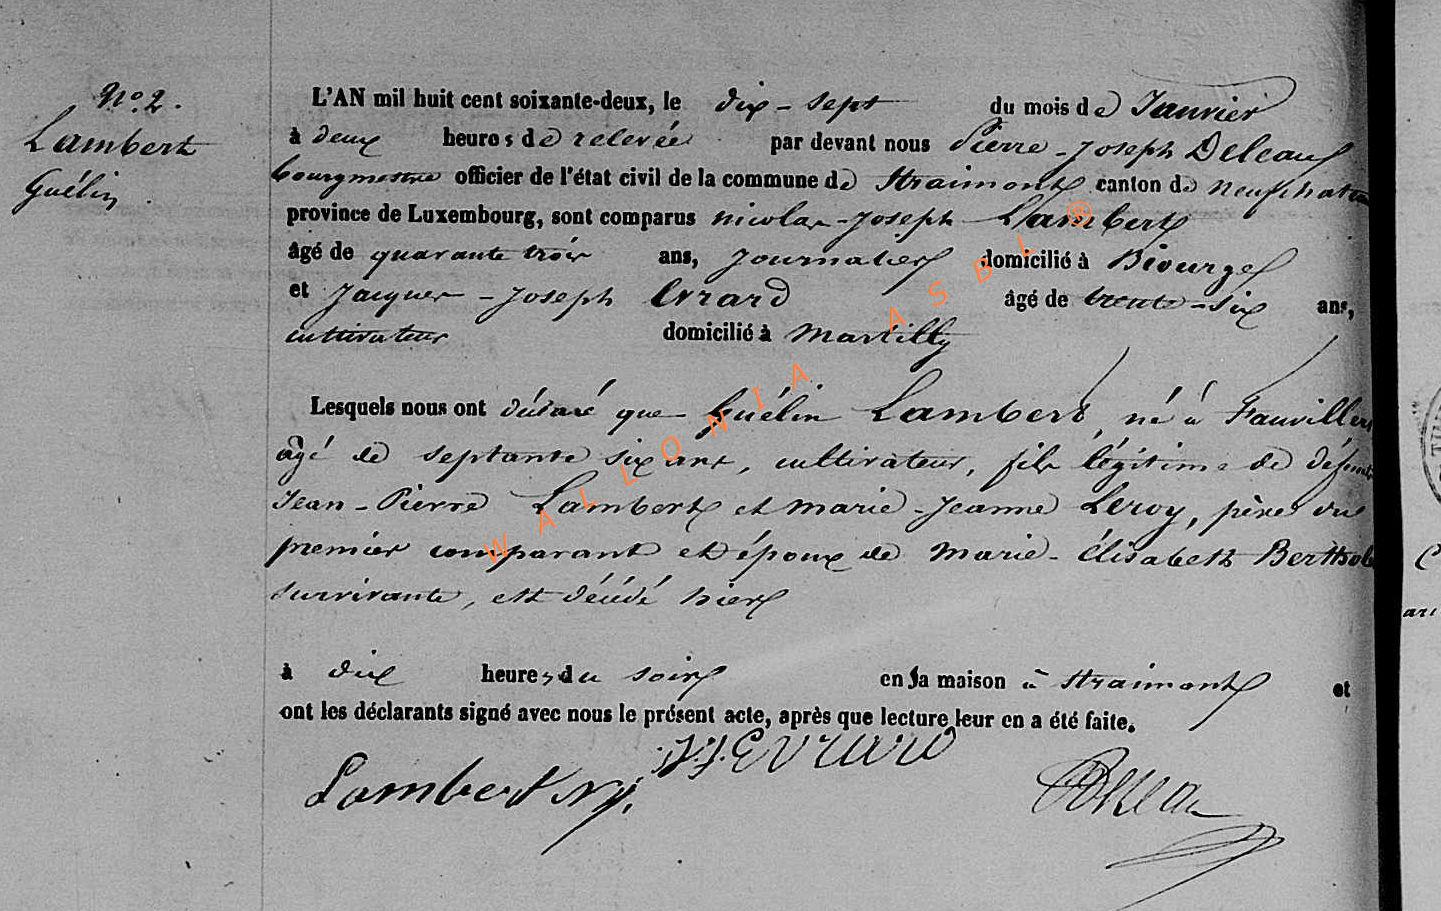 N° 2.
Lambert
Guélin
L'AN mil huit cent soixante-deux, le dix-sept du mois de Janvier
à deux heures de relevée par devant nous Pierre-Joseph Deleau
bourgmestre officier de l'état civil de la commune de Straimont canton de neufchateau
province de Luxembourg, sont comparus nicolas-Joseph Lambert
âgé de quarante trois ans, Journalier domicilié à Biourge
et Jacques-Joseph Evrard âgé de trente-six ans,
cultivateur domicilié à Martilly
Lesquels nous ont déclaré que Guélin Lambert, né à Fauvillers
âgé de septante six ans, cultivateur, fils légitime de défunts
Jean-Pierre Lambert et marie-Jeanne Leroy, père du
premier comparant et époux de Marie-Élisabeth
survivante, est décédé hier
à dix heures du soir en sa maison à Straimont et
ont les déclarants signé avec nous le présent acte, après que lecture leur en a été faite.
Lambert N.J. J.J. EVrard
WALLONIA ASBL ®